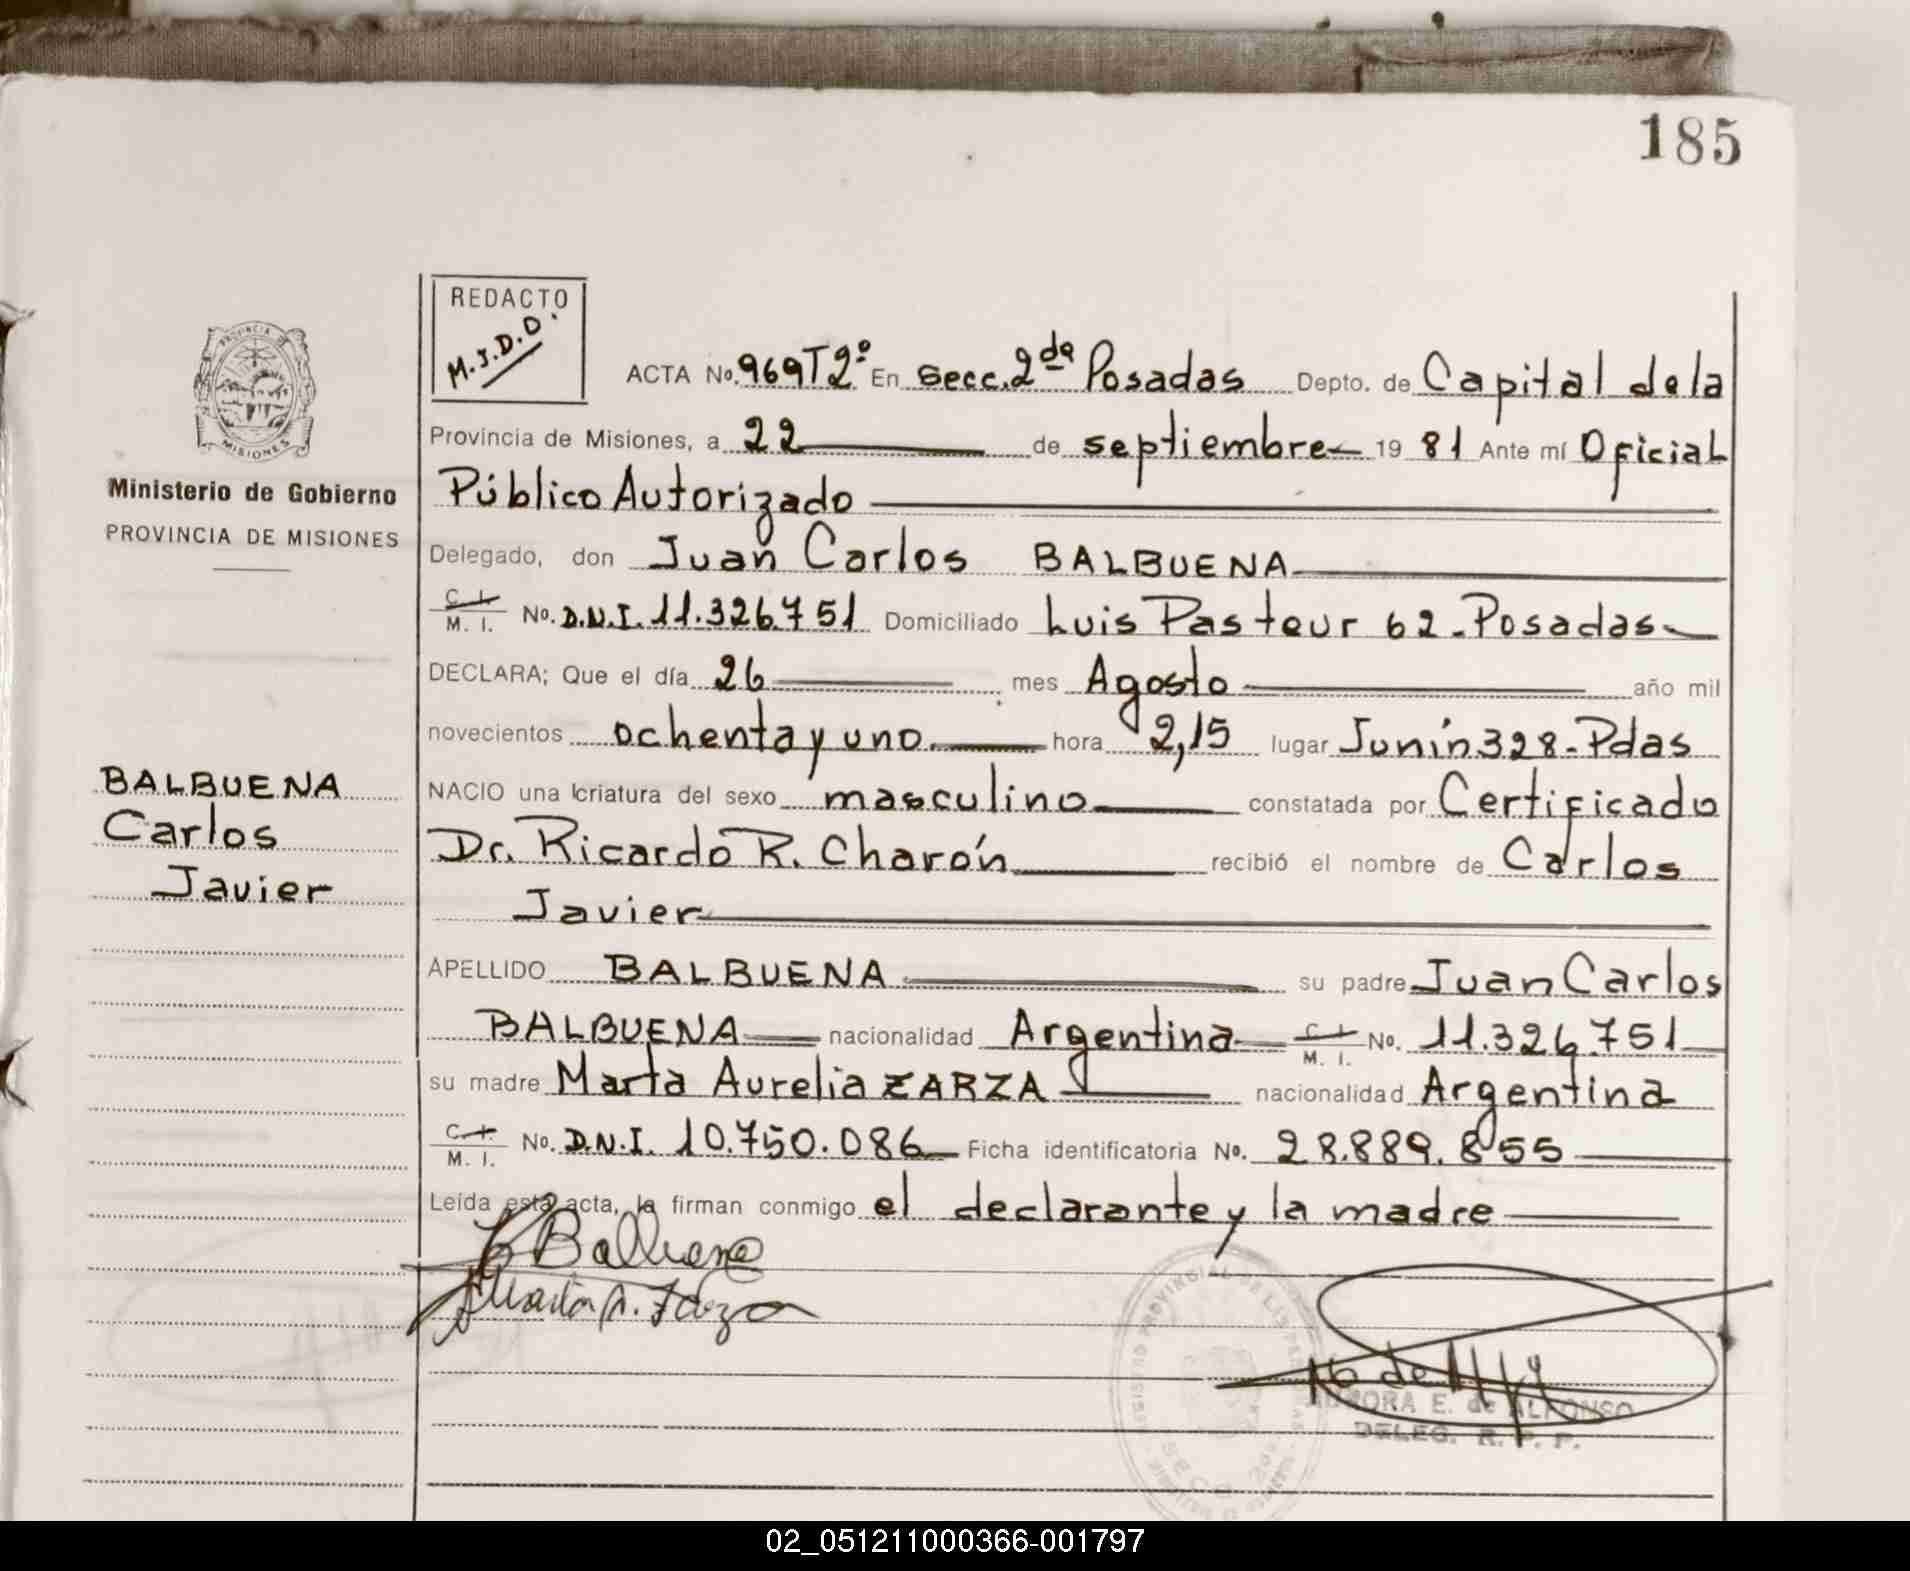 185
REDACTO
M.I.D.O.
ACTA No. 969 T 2º En Secc. 2da Posadas Depto. de Capital de la
Provincia de Misiones, a 22 de septiembre 19 81 Ante mí Oficial
Público Autorizado
Delegado, don Juan Carlos BALBUENA
C. I. / M. I. No. D.N.I. 11.326.751 Domiciliado Luis Pasteur 62 - Posadas
DECLARA; Que el día 26 mes Agosto año mil
novecientos ochenta y uno hora 2,15 lugar Junín 328 - Pdas
NACIO una criatura del sexo masculino constatada por Certificado
Dr. Ricardo R. Charón recibió el nombre de Carlos
Javier
APELLIDO BALBUENA su padre Juan Carlos
BALBUENA nacionalidad Argentina C. I. / M. I. No. 11.326.751
su madre Marta Aurelia ZARZA nacionalidad Argentina
C. I. / M. I. No. D.N.I. 10.750.086 Ficha identificatoria No. 28.889.855
Leída esta acta, la firman conmigo el declarante y la madre
Balbuena
Marta A. Zarza
AURORA E. de ALFONSO
DELEG. R. P. P.
MISIONES
Ministerio de Gobierno
PROVINCIA DE MISIONES
BALBUENA
Carlos
Javier
02_051211000366-001797